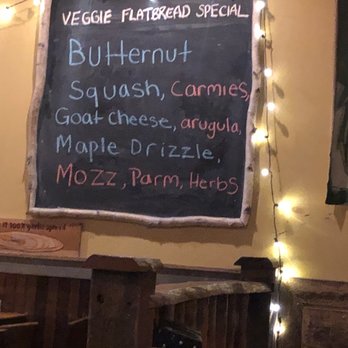 VEGGIE FLATBREAD SPECIAL
Butternut
Squash, Carmies,
Goat cheese, arugula,
Maple Drizzle,
Mozz, Parm, Herbs